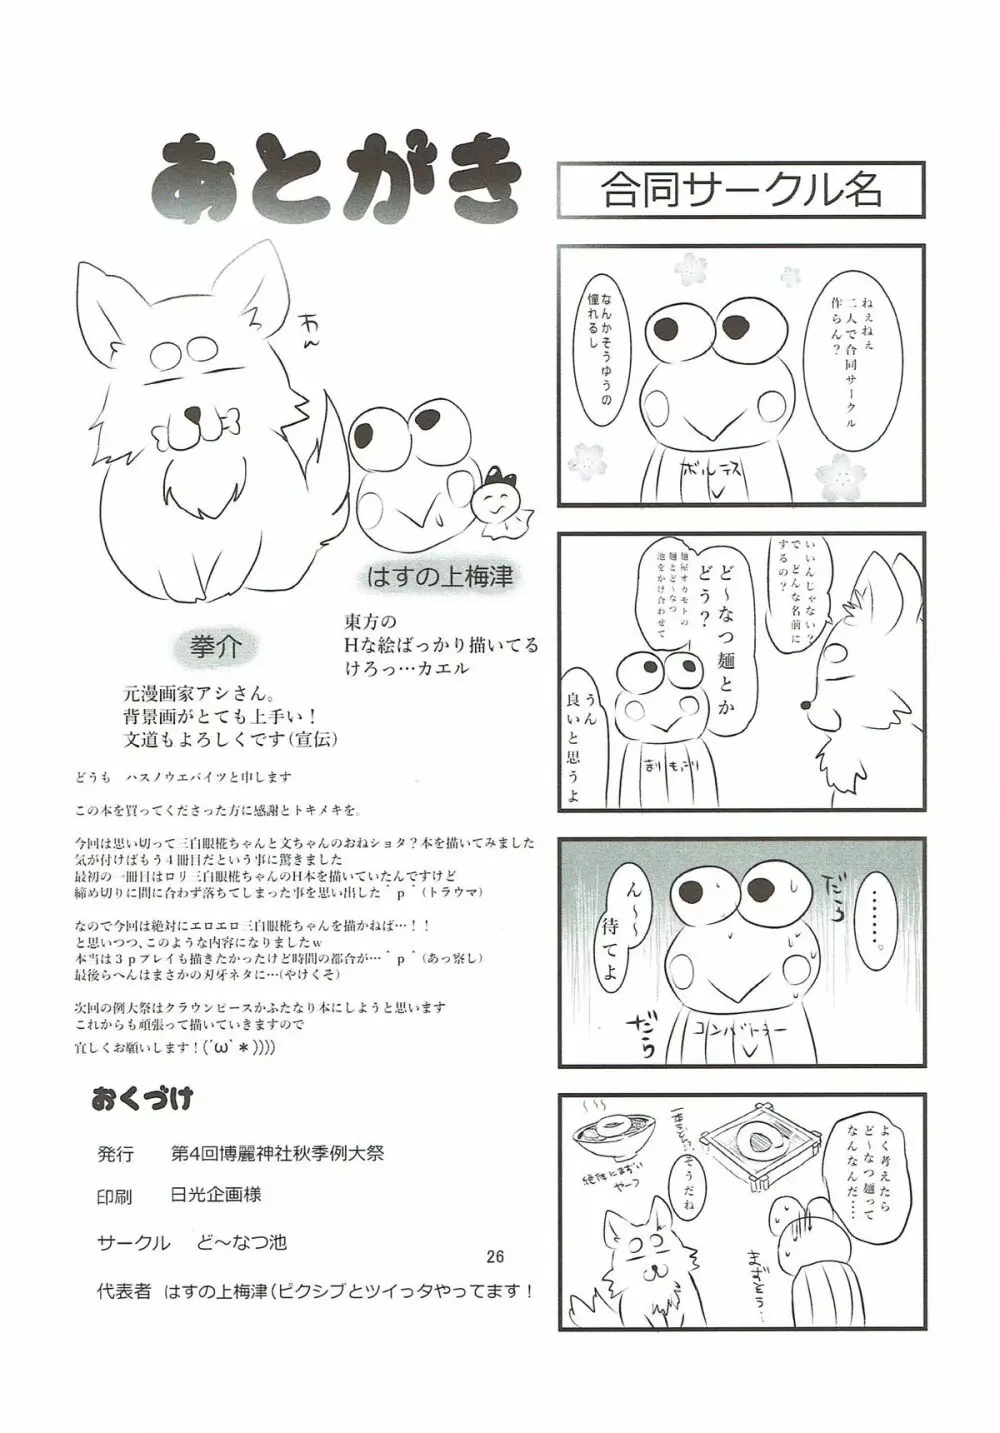 あとがき
わん
はすの上梅津
東方の
Hな絵ばっかり描いてる
けろっ…カエル
拳介
元漫画家アシさん。
背景画がとても上手い！
文道もよろしくです（宣伝）
どうも　ハスノウエバイツと申します
この本を買ってくださった方に感謝とトキメキを。
今回は思い切って三白眼椛ちゃんと文ちゃんのおねショタ？本を描いてみました
気が付けばもう４冊目だという事に驚きました
最初の一冊目はロリ三白眼椛ちゃんのH本を描いていたんですけど
締め切りに間に合わず落ちてしまった事を思い出した＾p＾（トラウマ）
なので今回は絶対にエロエロ三白眼椛ちゃんを描かねば…！！
と思いつつ、このような内容になりましたｗ
本当は３pプレイも描きたかったけど時間の都合が…＾p＾（あっ察し）
最後らへんはまさかの刃牙ネタに…（やけくそ）
次回の例大祭はクラウンピースかふたなり本にしようと思います
これからも頑張って描いていきますので
宜しくお願いします！(´ω`＊))))
おくづけ
発行　第4回博麗神社秋季例大祭
印刷　日光企画様
サークル　ど〜なつ池
代表者　はすの上梅津（ピクシブとツイっタやってます！
26
合同サークル名
ねぇねぇ
二人で合同サークル
作らん？
なんかそうゆうの
憧れるし
ボルテス
V
いいんじゃない？
で どんな名前に
するの？
ど〜なつ麺とか
どう？
麺屋オカモトの
麺とど〜なつ
池をかけ合わせて
うん
良いと思うよ
まりもっこり
………。
だら
ん〜
待てよ
だら
コンバトラー
V
よく考えたら
ど〜なつ麺って
なんなんだ……
そうだね
絶体にまずい
やーつ
まずそう…